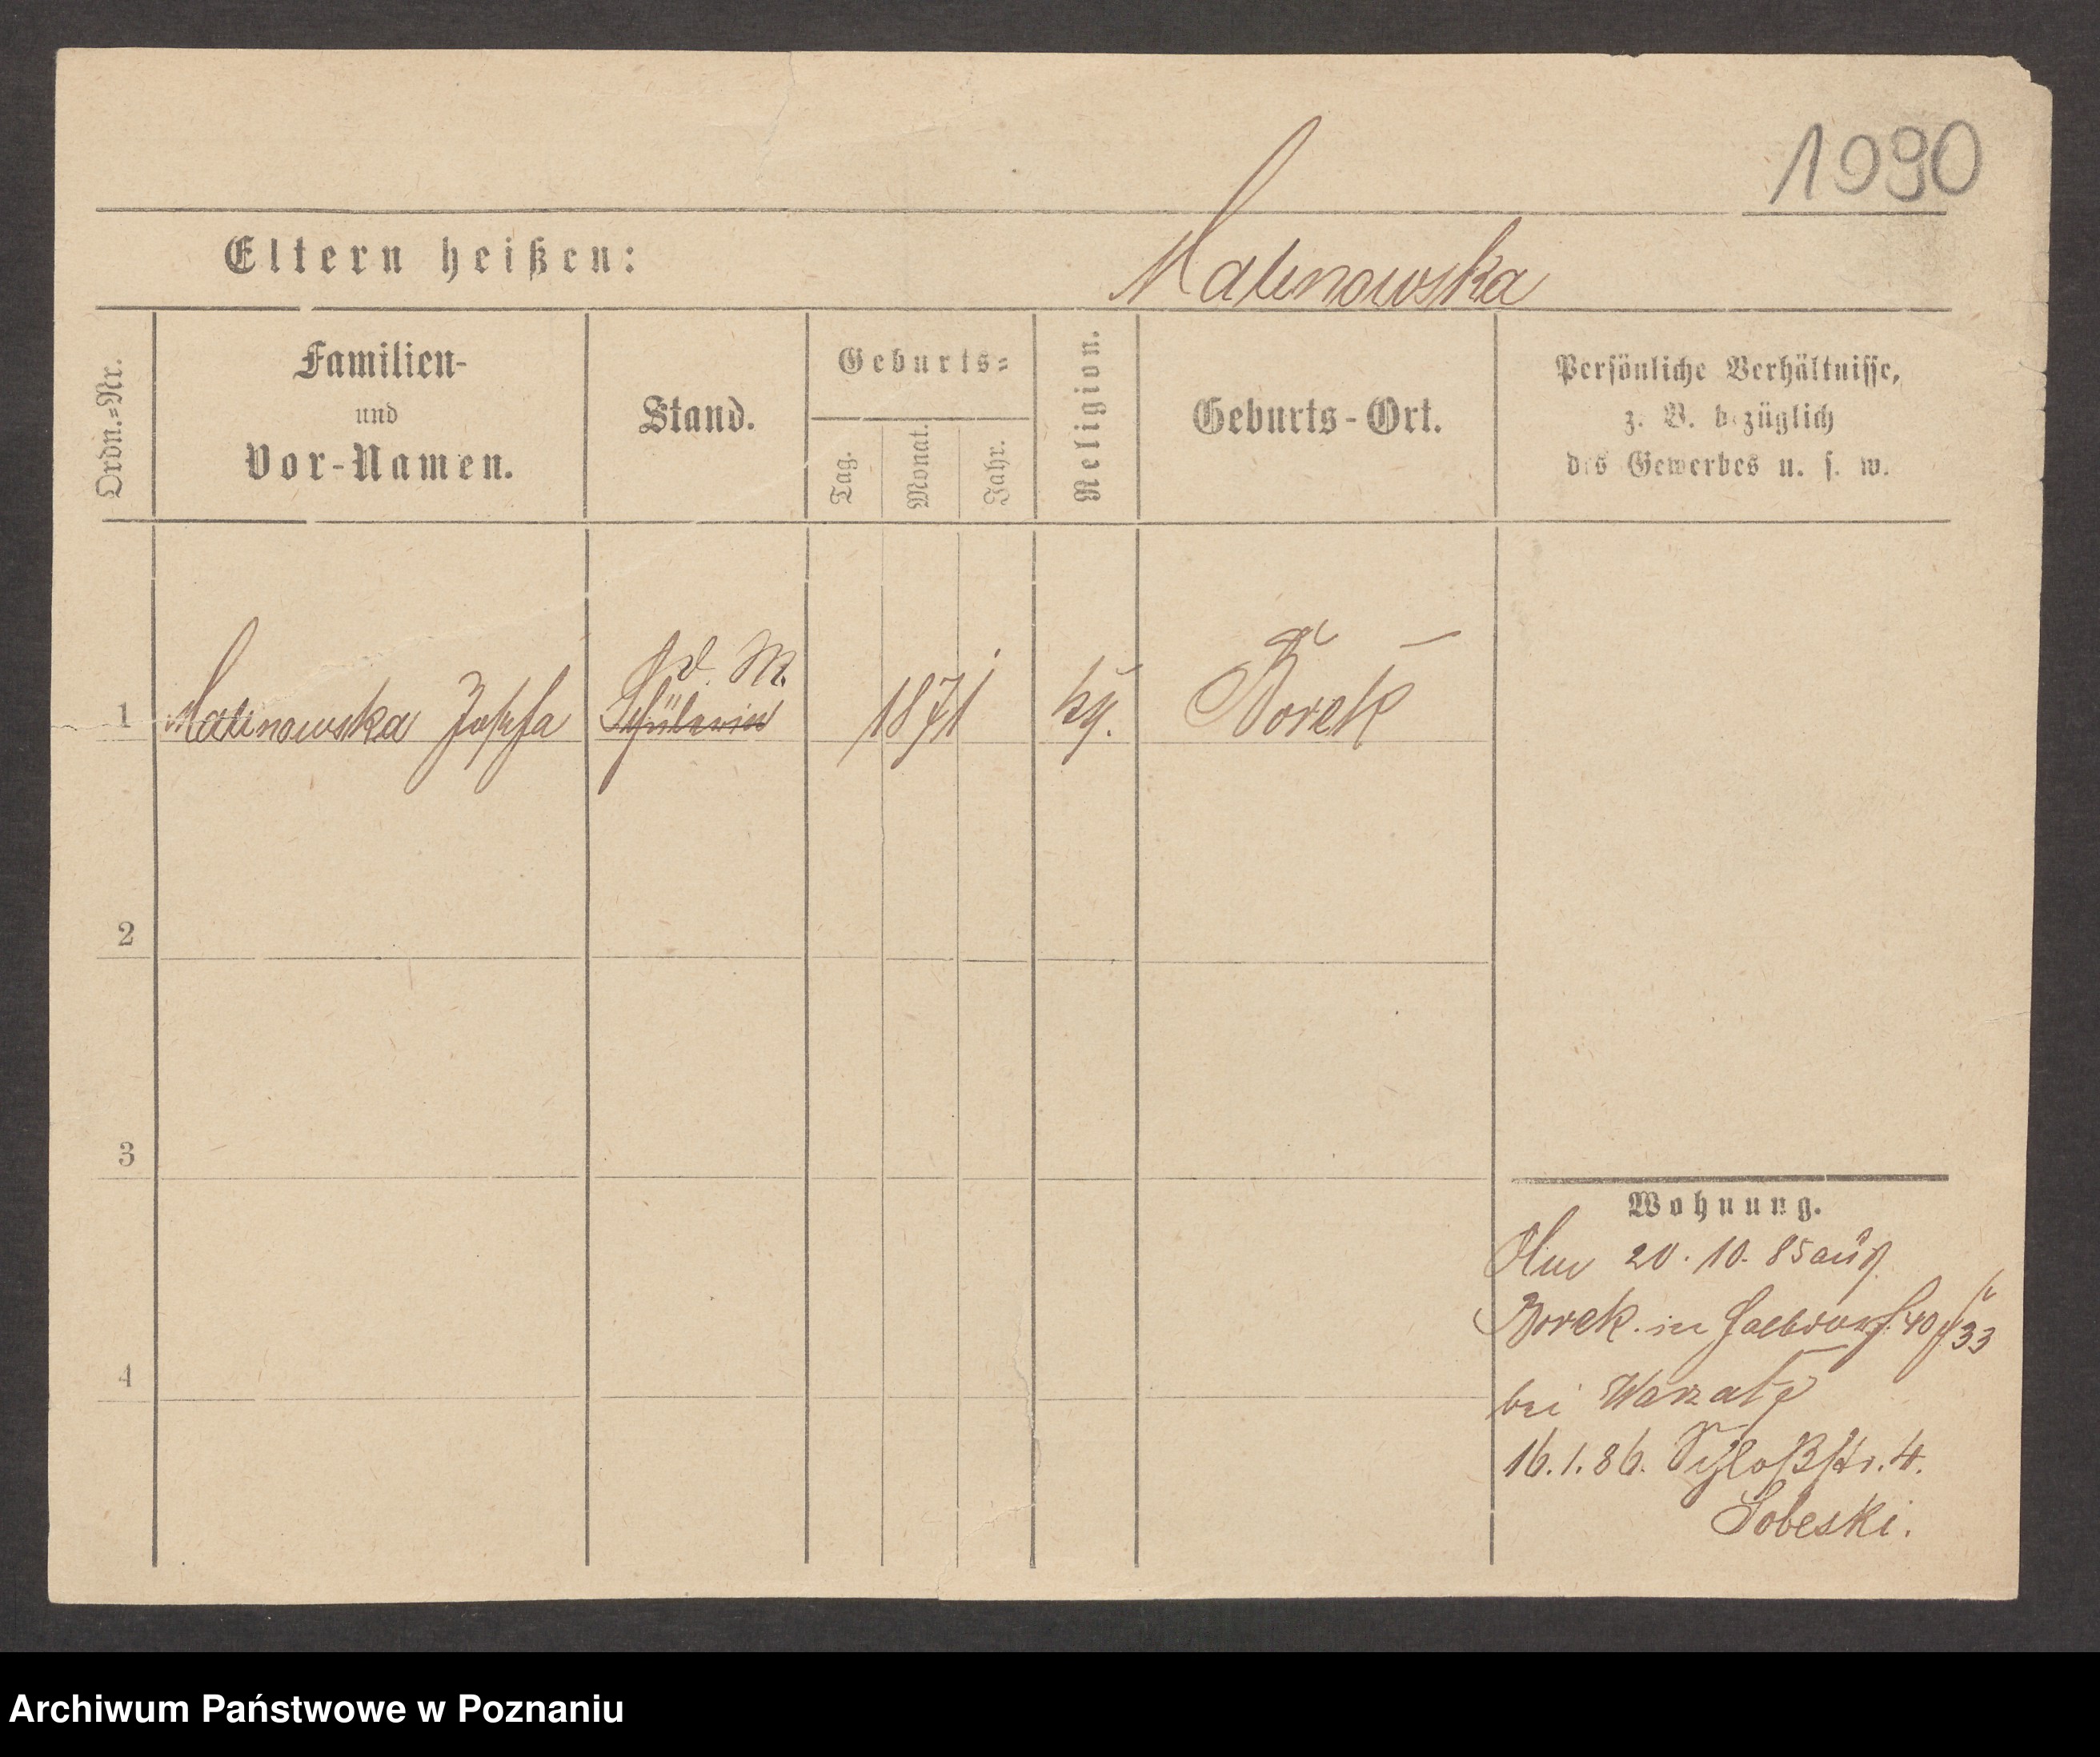 1090
Eltern heißen:
Malinowska
Ordn.=Nr.
Familien-
und
Vor-Namen.
Stand.
Geburts=
Tag.
Monat.
Jahr.
Religion.
Geburts-Ort.
Persönliche Verhältnisse,
z. B. bezüglich
des Gewerbes u. s. w.
d. M.
1 Malinowska Josefa Schülerin 1871 kg. Borek
2
3
4
Wohnung.
20.10.85 aus
Borek in 40 33
bei
16.1.86. Schloßstr. 4.
Sobeski.
Archiwum Państwowe w Poznaniu